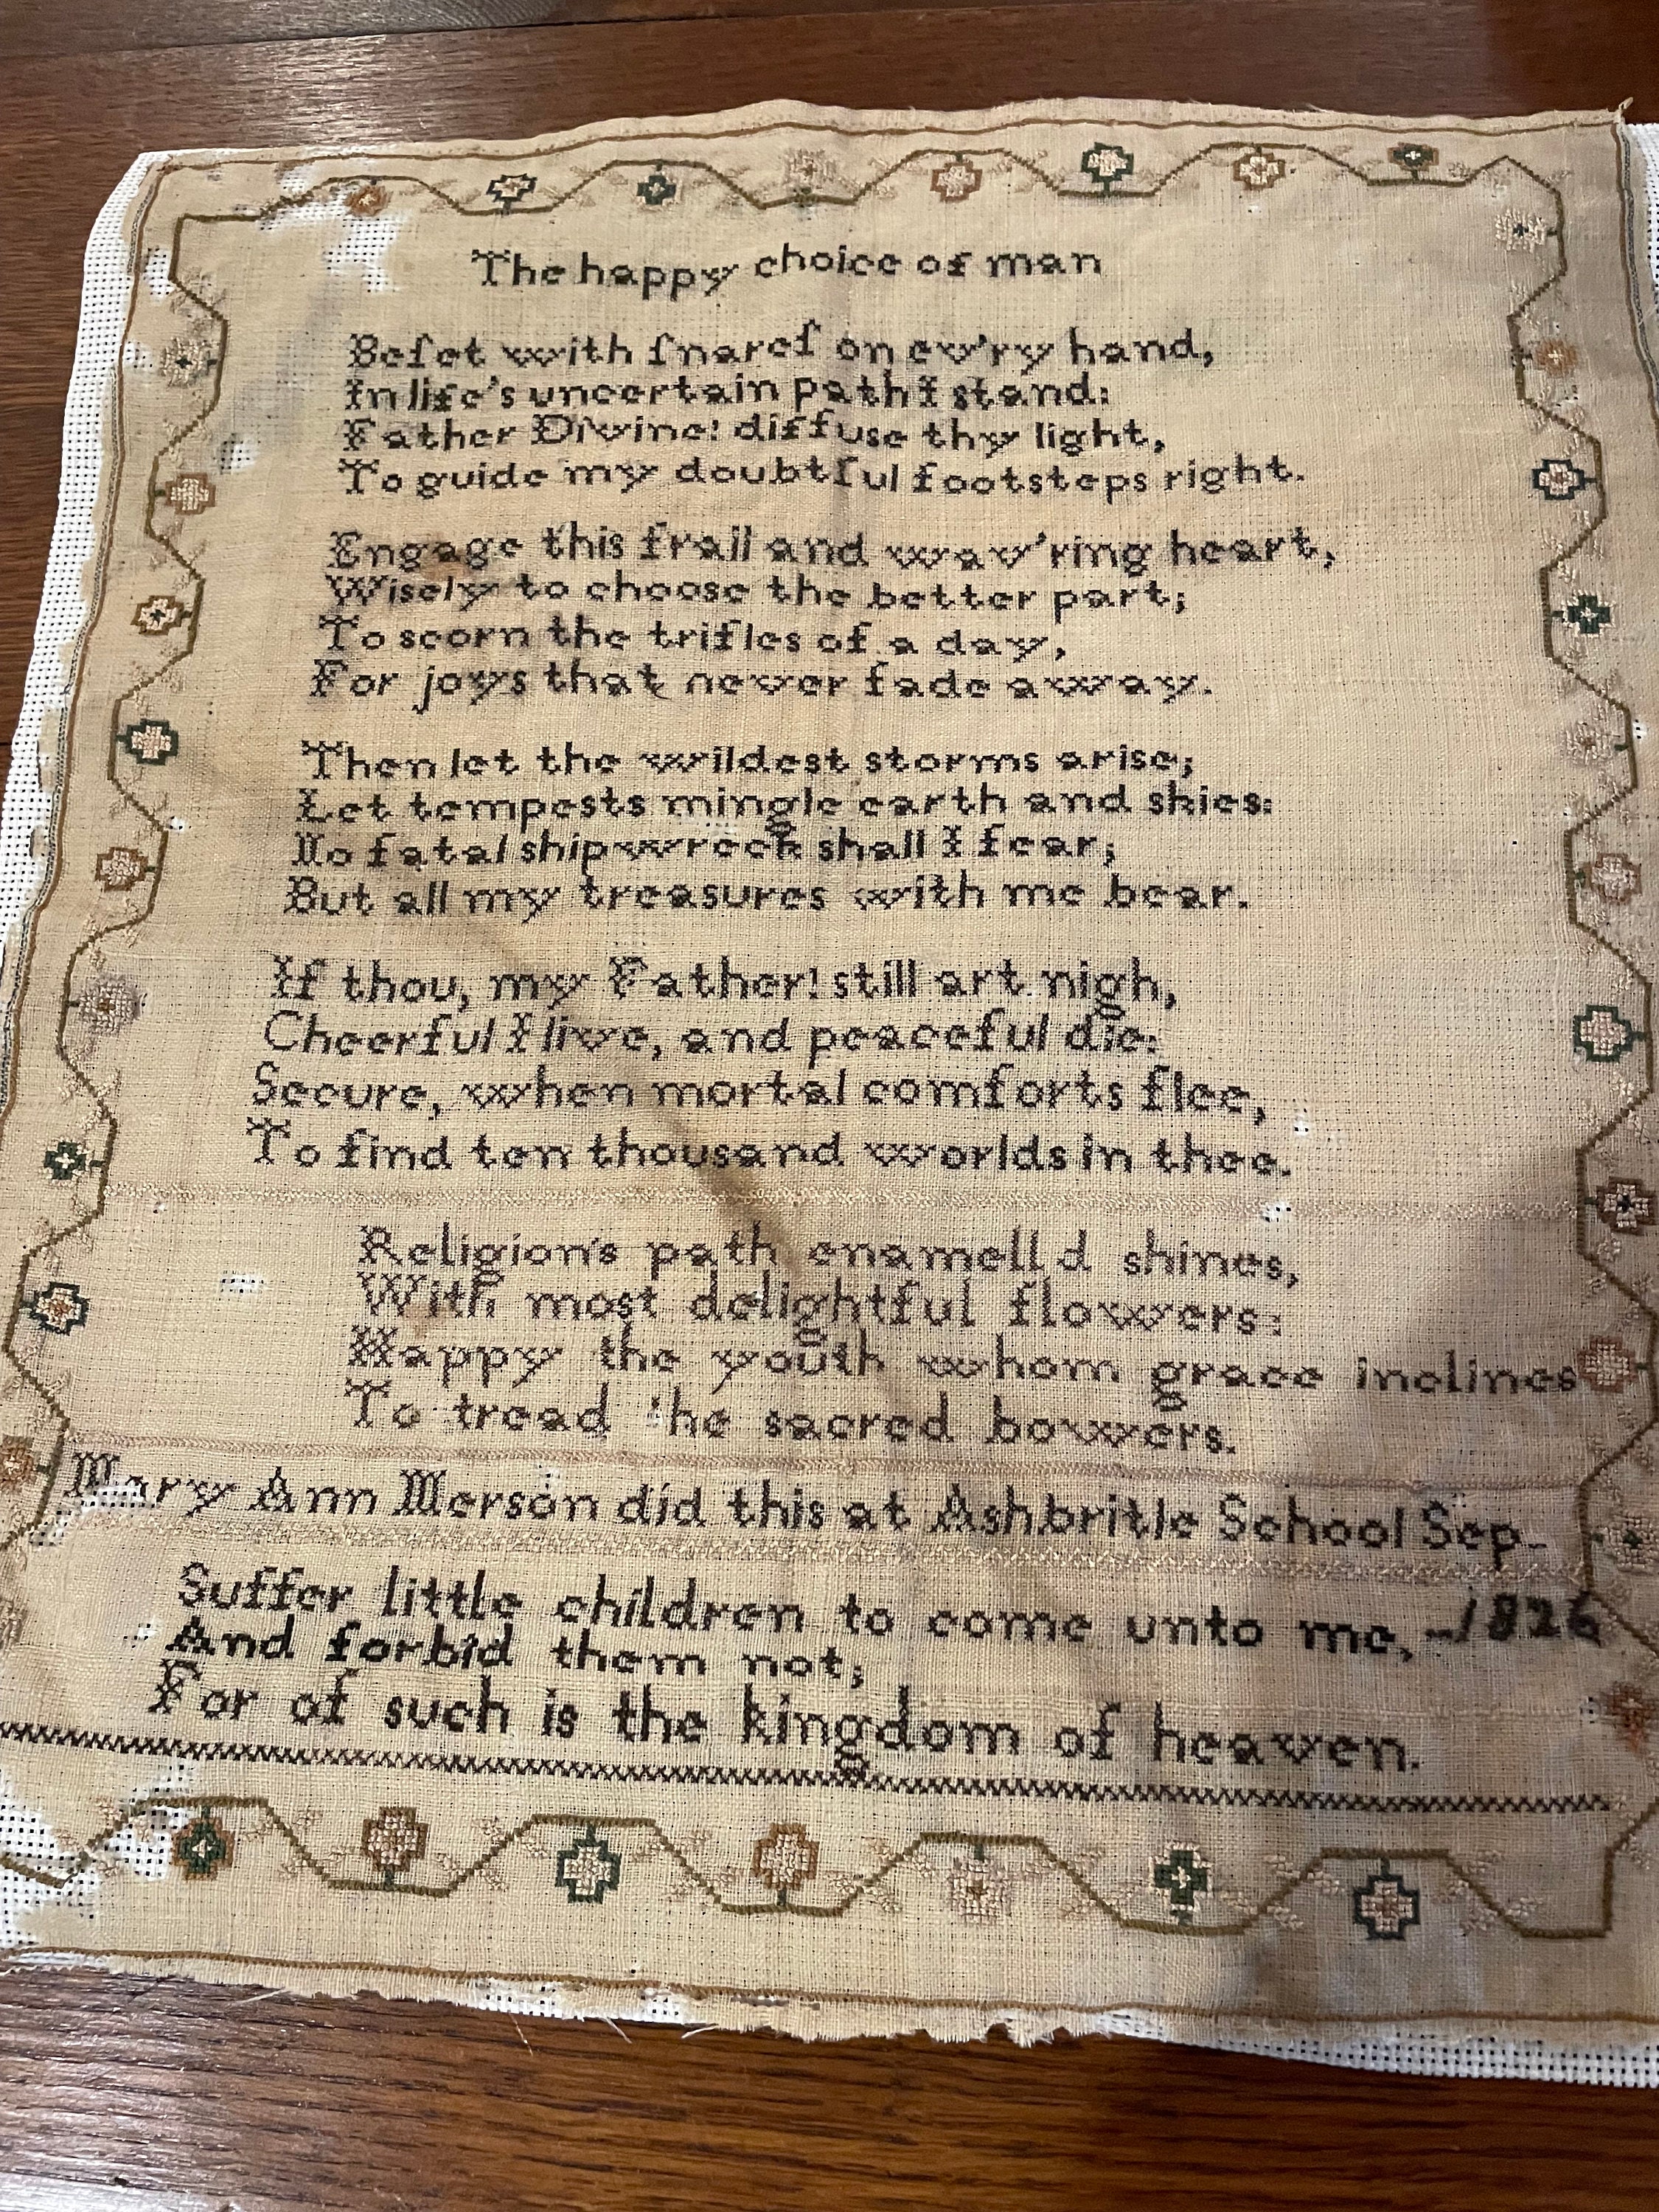 The happy choice of man
Beſet with ſnareſ on ev'ry hand,
In life's uncertain path I stand:
Father Divine! diffuse thy light,
To guide my doubtful footsteps right.
Engage this frail and wav'ring heart,
Wisely to choose the better part;
To scorn the trifles of a day,
For joys that never fade away.
Then let the wildest storms arise;
Let tempests mingle earth and skies:
No fatal shipwreck shall I fear;
But all my treasures with me bear.
If thou, my Father! still art nigh,
Cheerful I live, and peaceful die:
Secure, when mortal comforts flee,
To find ten thousand worlds in thee.
Religion's path enamell d shines,
With most delightful flowers:
Happy the youth whom grace inclines
To tread the sacred bowers.
Mary Ann Merson did this at Ashbritle School Sep-
Suffer little children to come unto me, -1826
And forbid them not;
For of such is the kingdom of heaven.